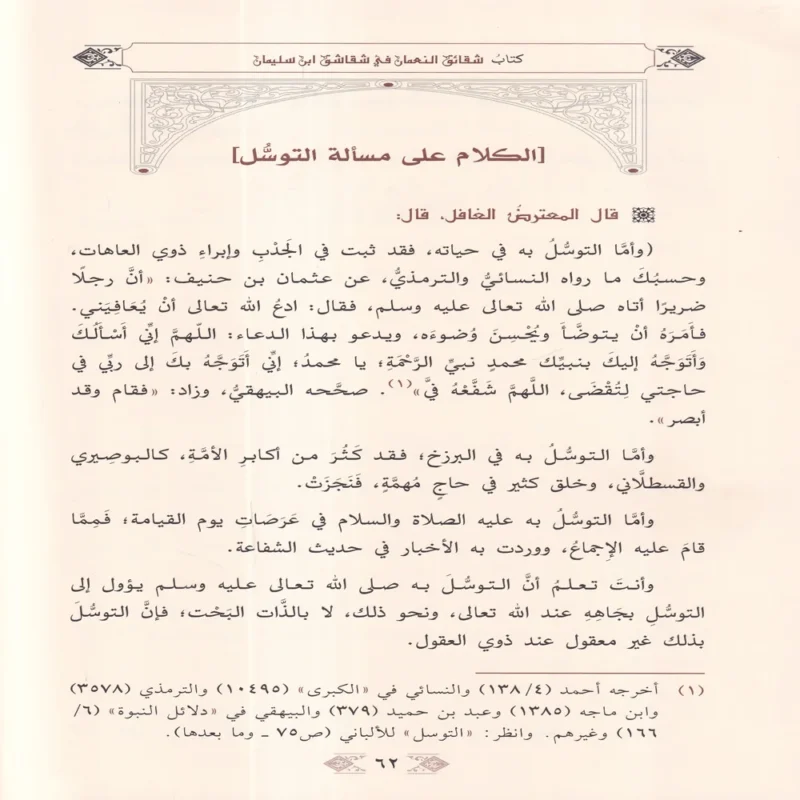 كتابُ شقائق النعمان في شقاشق ابن سليمان
[الكلام على مسألة التوسُّل]
قال المعترضُ الغافل، قال:
(وأمَّا التوسُّلُ به في حياته، فقد ثبت في الجَدْبِ وإبراءِ ذوي العاهات،
وحسبُكَ ما رواه النسائيُّ والترمذيُّ، عن عثمان بن حنيف: «أنَّ رجلًا
ضريرًا أتاه صلى الله تعالى عليه وسلم، فقال: ادعُ الله تعالى أنْ يُعَافِيَني.
فأمَرَهُ أنْ يتوضَّأَ ويُحْسِنَ وُضوءَه، ويدعو بهذا الدعاء: اللَّهمَّ إنِّي أَسْأَلُكَ
وَأَتَوَجَّهُ إليكَ بنبيِّك محمدٍ نبيِّ الرَّحْمَةِ؛ يا محمدُ؛ إنِّي أَتَوَجَّهُ بكَ إلى ربِّي في
حاجتي لِتُقْضَى، اللَّهمَّ شَفِّعْهُ فيَّ»(١). صحَّحه البيهقيُّ، وزاد: «فقام وقد
أبصر».
وأمَّا التوسُّلُ به في البرزخ؛ فقد كَثُرَ من أكابرِ الأمَّةِ، كالبوصيري
والقسطلَّاني، وخلق كثير في حاجٍ مُهمَّةٍ، فَنَجَزَتْ.
وأمَّا التوسُّلُ به عليه الصلاة والسلام في عَرَصَاتِ يوم القيامة؛ فَمِمَّا
قامَ عليه الإجماعُ، ووردت به الأخبار في حديث الشفاعة.
وأنتَ تعلمُ أنَّ التوسُّلَ به صلى الله تعالى عليه وسلم يؤول إلى
التوسُّلِ بجَاهِهِ عند الله تعالى، ونحو ذلك، لا بالذَّات البَحْت؛ فإنَّ التوسُّلَ
بذلك غير معقول عند ذوي العقول.
(١) أخرجه أحمد (١٣٨/٤) والنسائي في «الكبرى» (١٠٤٩٥) والترمذي (٣٥٧٨)
وابن ماجه (١٣٨٥) وعبد بن حميد (٣٧٩) والبيهقي في «دلائل النبوة» (٦/
١٦٦) وغيرهم. وانظر: «التوسل» للألباني (ص٧٥ ـ وما بعدها).
٦٢